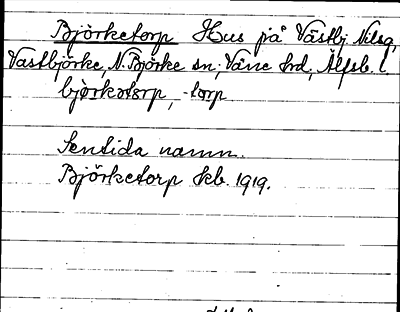 Björketorp Hus på Västbj. Nilsg,
Västbjörke, N. Björke sn; Väne hrd, Älfsb. l.
björkətorp, -torp
Sentida namn.
Björketorp kb. 1919.